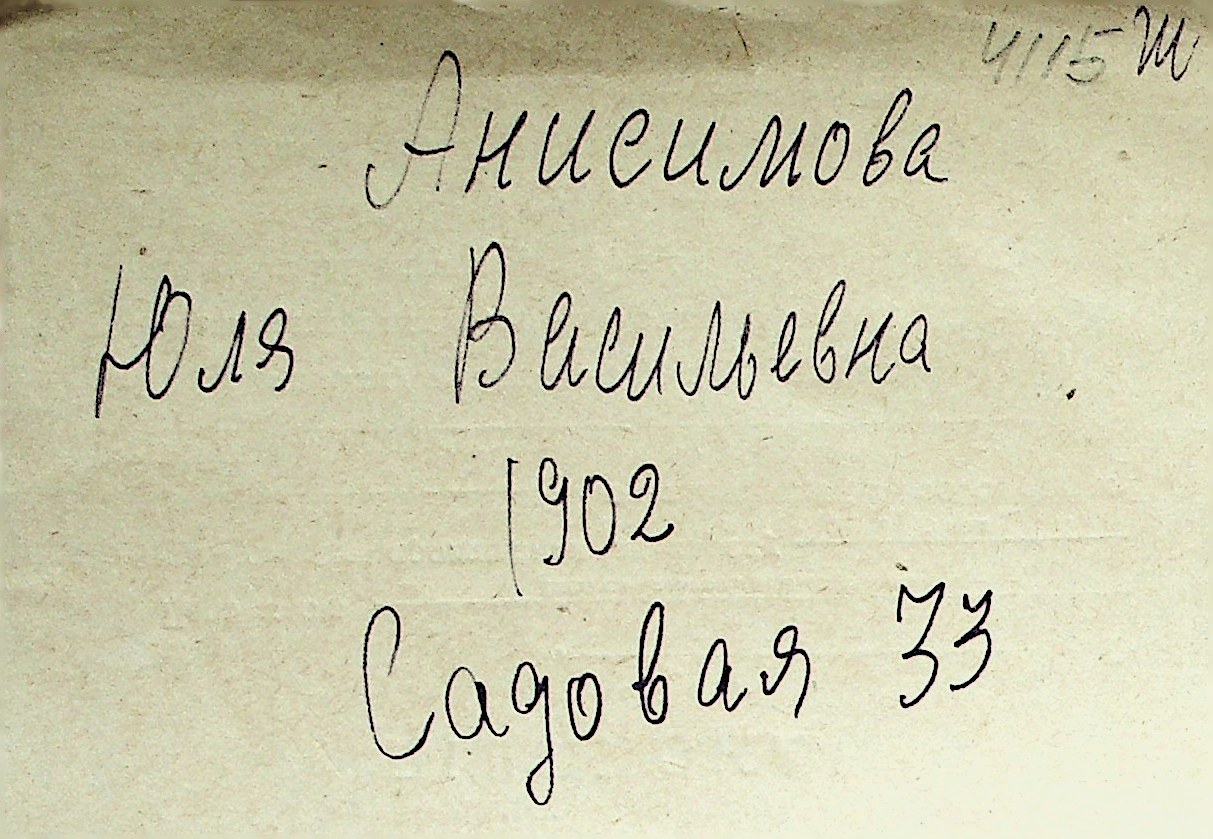 4115 Ш
Анисимова
Юля Васильевна
1902
Садовая 33